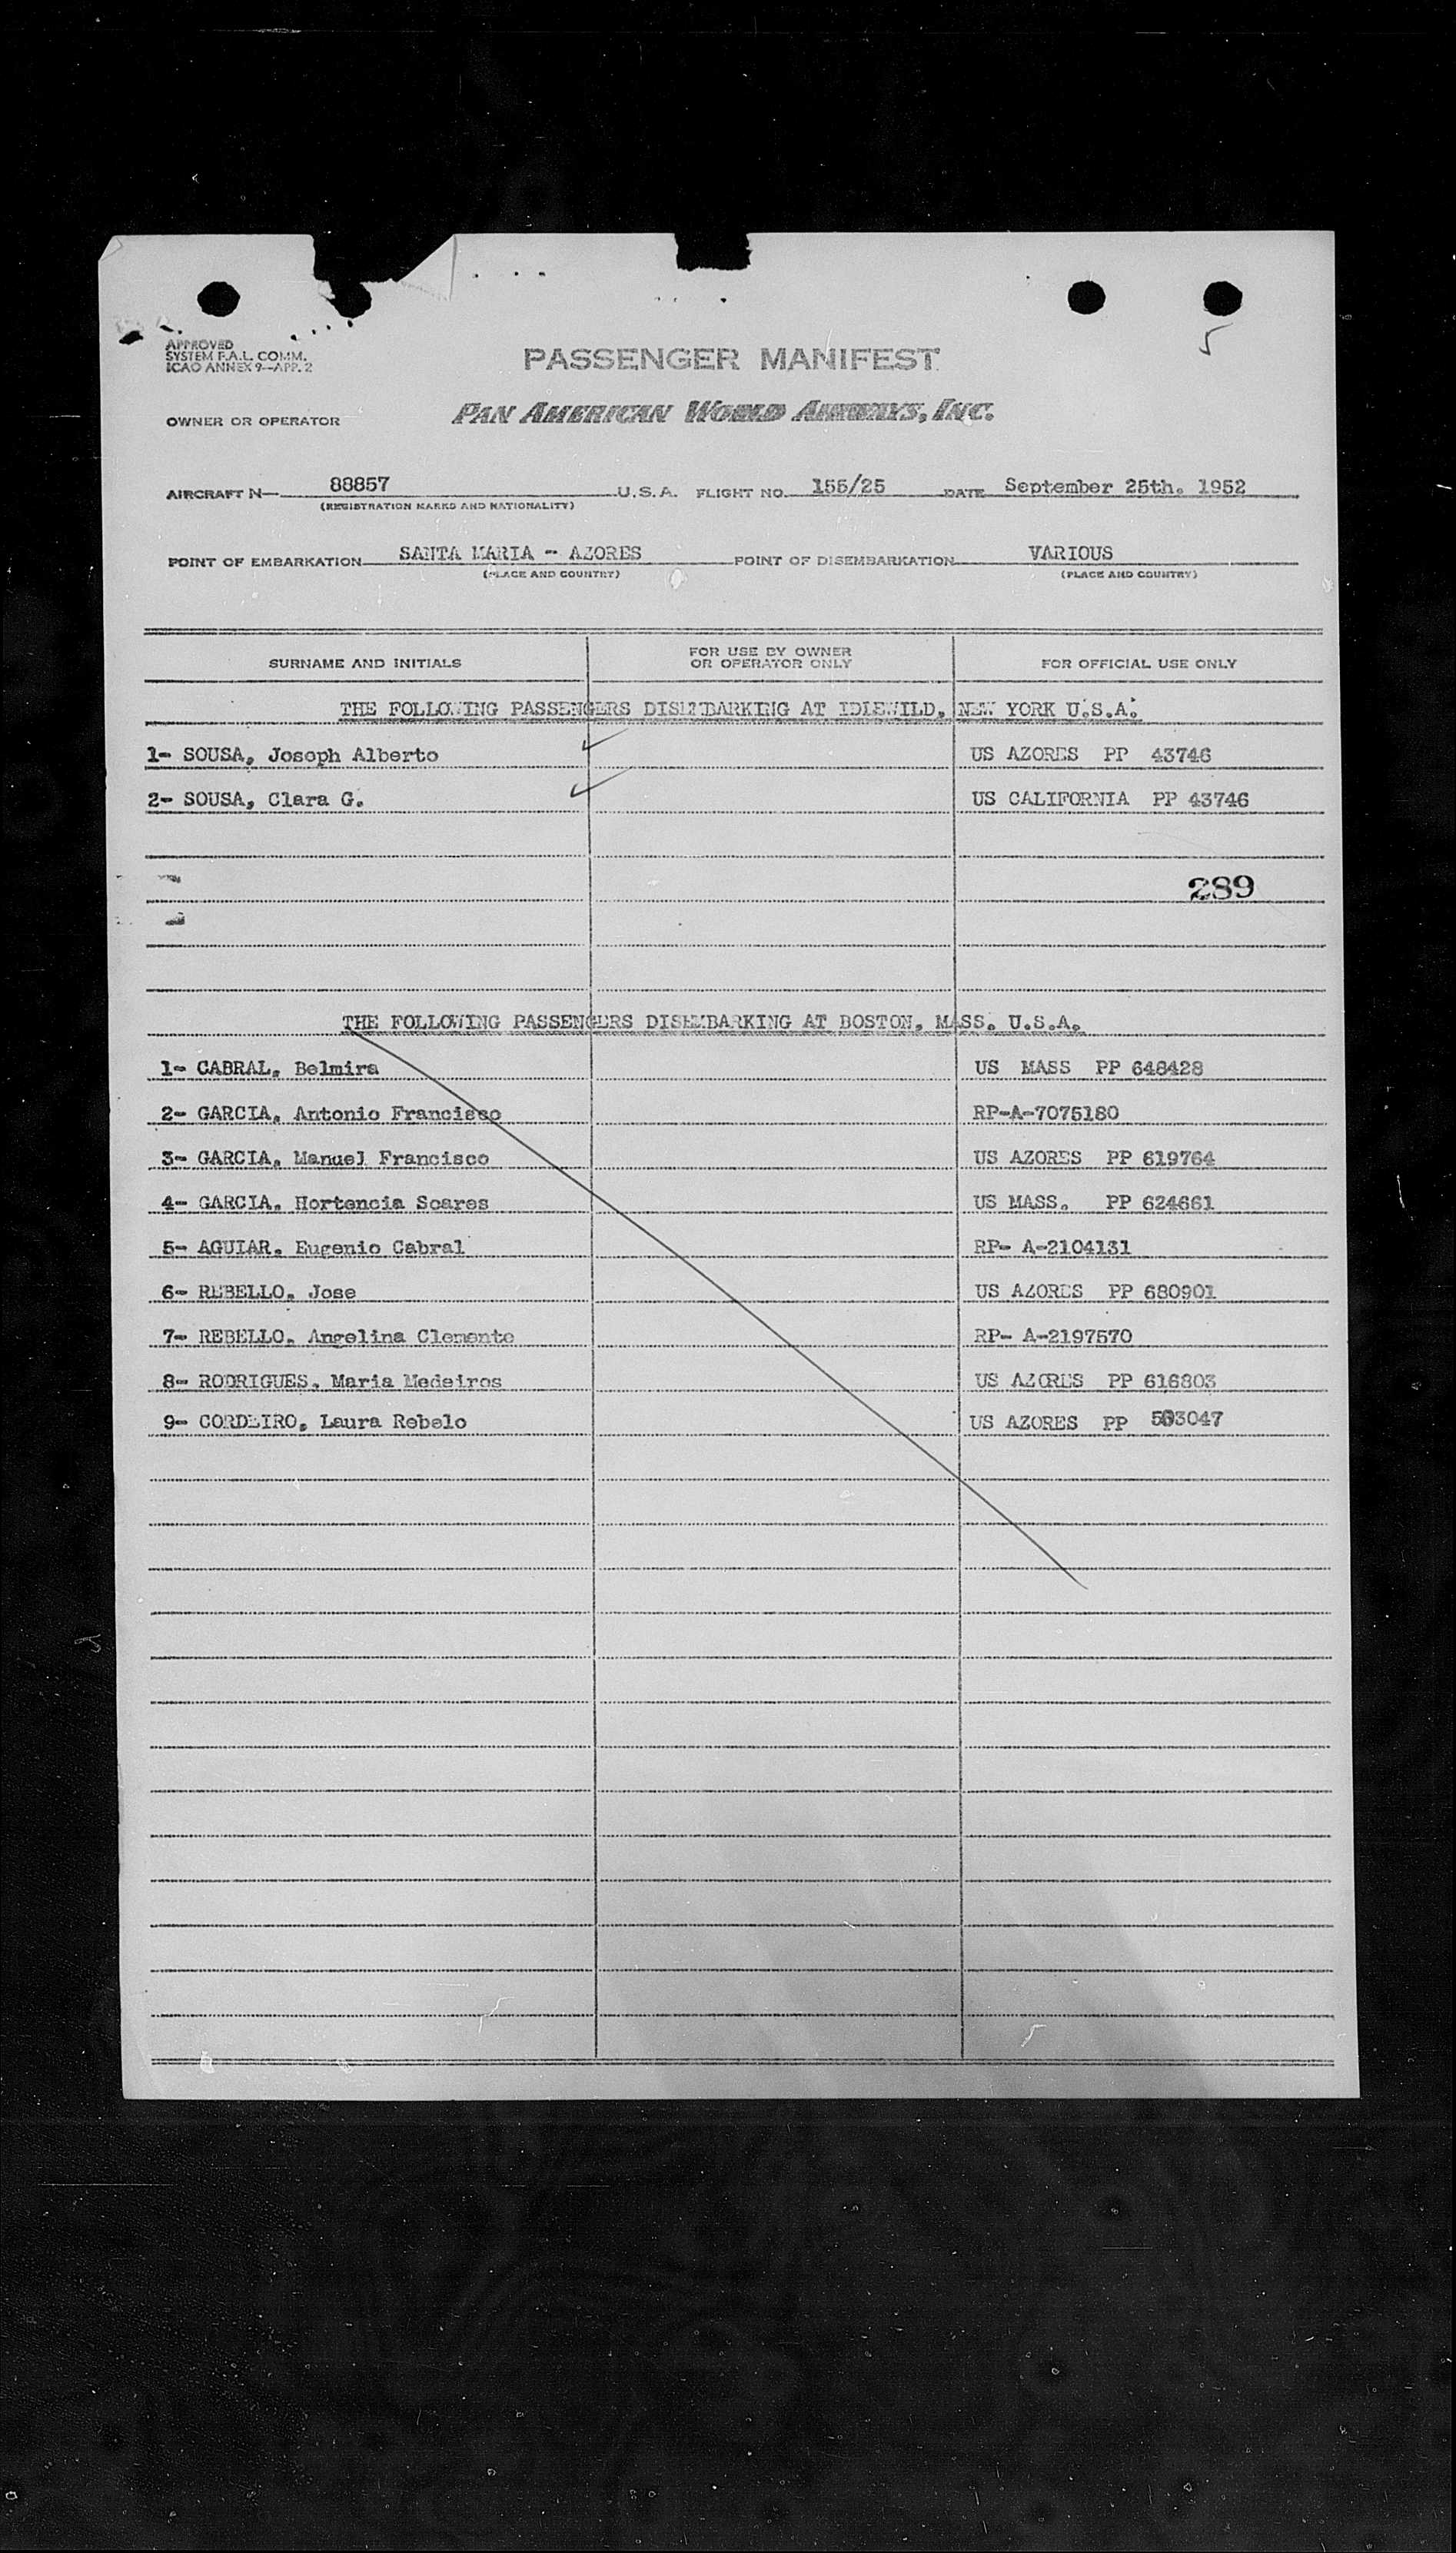 5
APPROVED
SYSTEM F.A.L. COMM.
ICAO ANNEX 9—APP. 2
PASSENGER MANIFEST
OWNER OR OPERATOR PAN AMERICAN WORLD AIRWAYS, INC.
AIRCRAFT N— 88857 U.S.A. FLIGHT NO. 155/25 DATE September 25th. 1952
(REGISTRATION MARKS AND NATIONALITY)
POINT OF EMBARKATION SANTA MARIA - AZORES POINT OF DISEMBARKATION VARIOUS
(PLACE AND COUNTRY) (PLACE AND COUNTRY)
SURNAME AND INITIALS FOR USE BY OWNER OR OPERATOR ONLY FOR OFFICIAL USE ONLY
THE FOLLOWING PASSENGERS DISEMBARKING AT IDLEWILD, NEW YORK U.S.A.
1- SOUSA, Joseph Alberto US AZORES PP 43746
2- SOUSA, Clara G. US CALIFORNIA PP 43746
289
THE FOLLOWING PASSENGERS DISEMBARKING AT BOSTON, MASS. U.S.A.
1- CABRAL, Belmira US MASS PP 648428
2- GARCIA, Antonio Francisco RP-A-7075180
3- GARCIA, Manuel Francisco US AZORES PP 619764
4- GARCIA, Hortencia Soares US MASS. PP 624661
5- AGUIAR, Eugenio Cabral RP- A-2104131
6- REBELLO, Jose US AZORES PP 680901
7- REBELLO, Angelina Clemente RP- A-2197570
8- RODRIGUES, Maria Medeiros US AZORES PP 616803
9- CORDEIRO, Laura Rebelo US AZORES PP